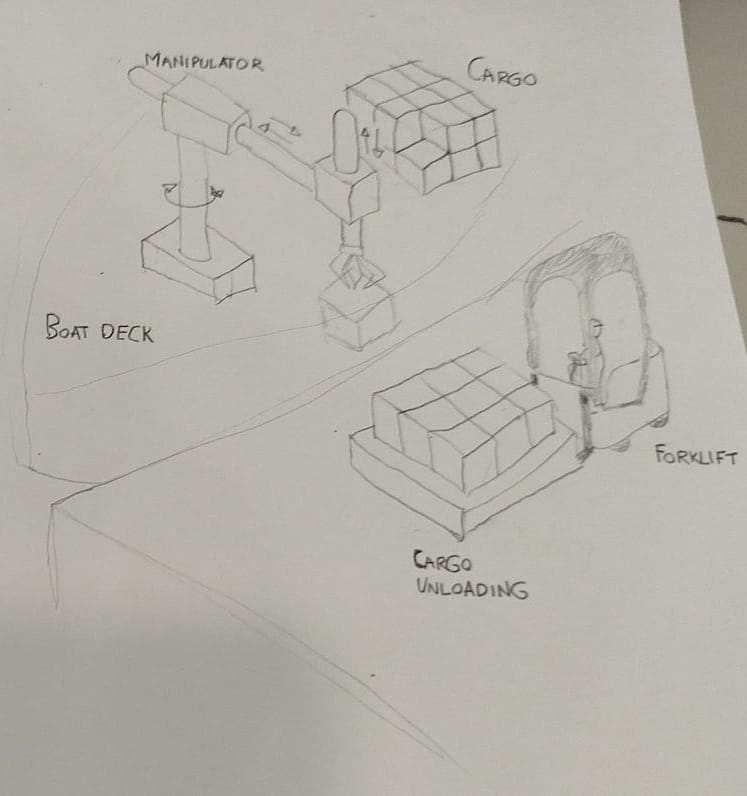 MANIPULATOR
CARGO
BOAT DECK
FORKLIFT
CARGO
UNLOADING